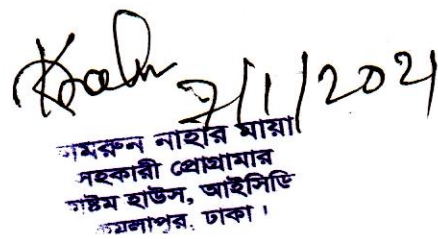 7/1/2021
কামরুন নাহার মায়া
সহকারী প্রোগ্রামার
কাষ্টম হাউস, আইসিডি
কমলাপুর, ঢাকা।